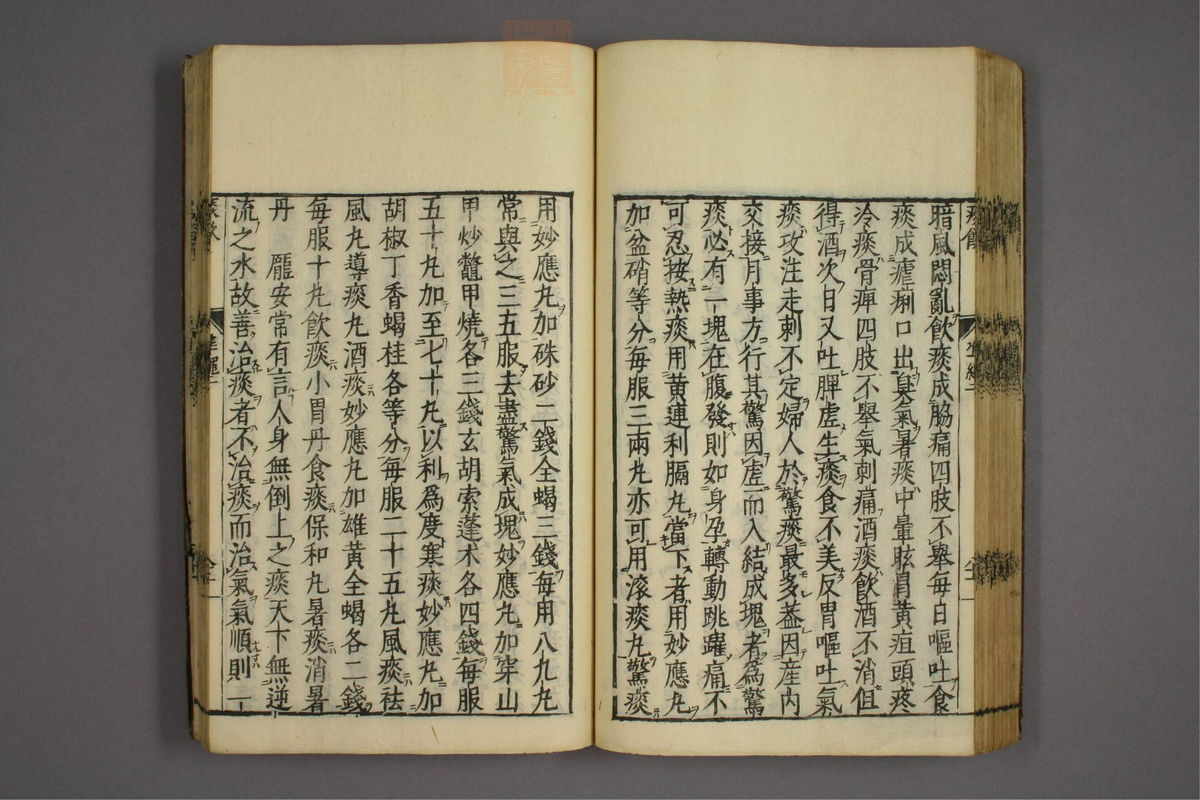 暗風悶亂飲痰成脇痛四肢不舉每日嘔吐食
痰成瘧痢口出臭氣暑痰中暈眩肩黃疸頭疼
冷痰骨痺四肢不舉氣刺痛酒痰飲酒不消但
得酒次日又吐脾虛生痰食不美反胃嘔吐氣
痰攻注走刺不定婦人於驚痰最多蓋因産內
交接月事方行其驚因虛而入結成塊者為驚
痰必有一塊在腹發則如身孕轉動跳躍痛不
可忍按熱痰用黃連利膈丸當下者用妙應丸
加盆硝等分每服三兩丸亦可用滚痰丸驚痰
用妙應丸加硃砂二錢全蝎三錢每用八九丸
常與之三五服去盡驚氣成塊妙應丸加穿山
甲炒鼈甲燒各三錢玄胡索蓬术各四錢每服
五十丸加至七十丸以利為度寒痰妙應丸加
胡椒丁香蝎桂各等分每服二十五丸風痰祛
風丸導痰丸酒痰妙應丸加雄黃全蝎各二錢
每服十丸飲痰小胃丹食痰保和丸暑痰消暑
丹 龐安常有言人身無倒上之痰天下無逆
流之水故善治痰者不治痰而治氣氣順則一